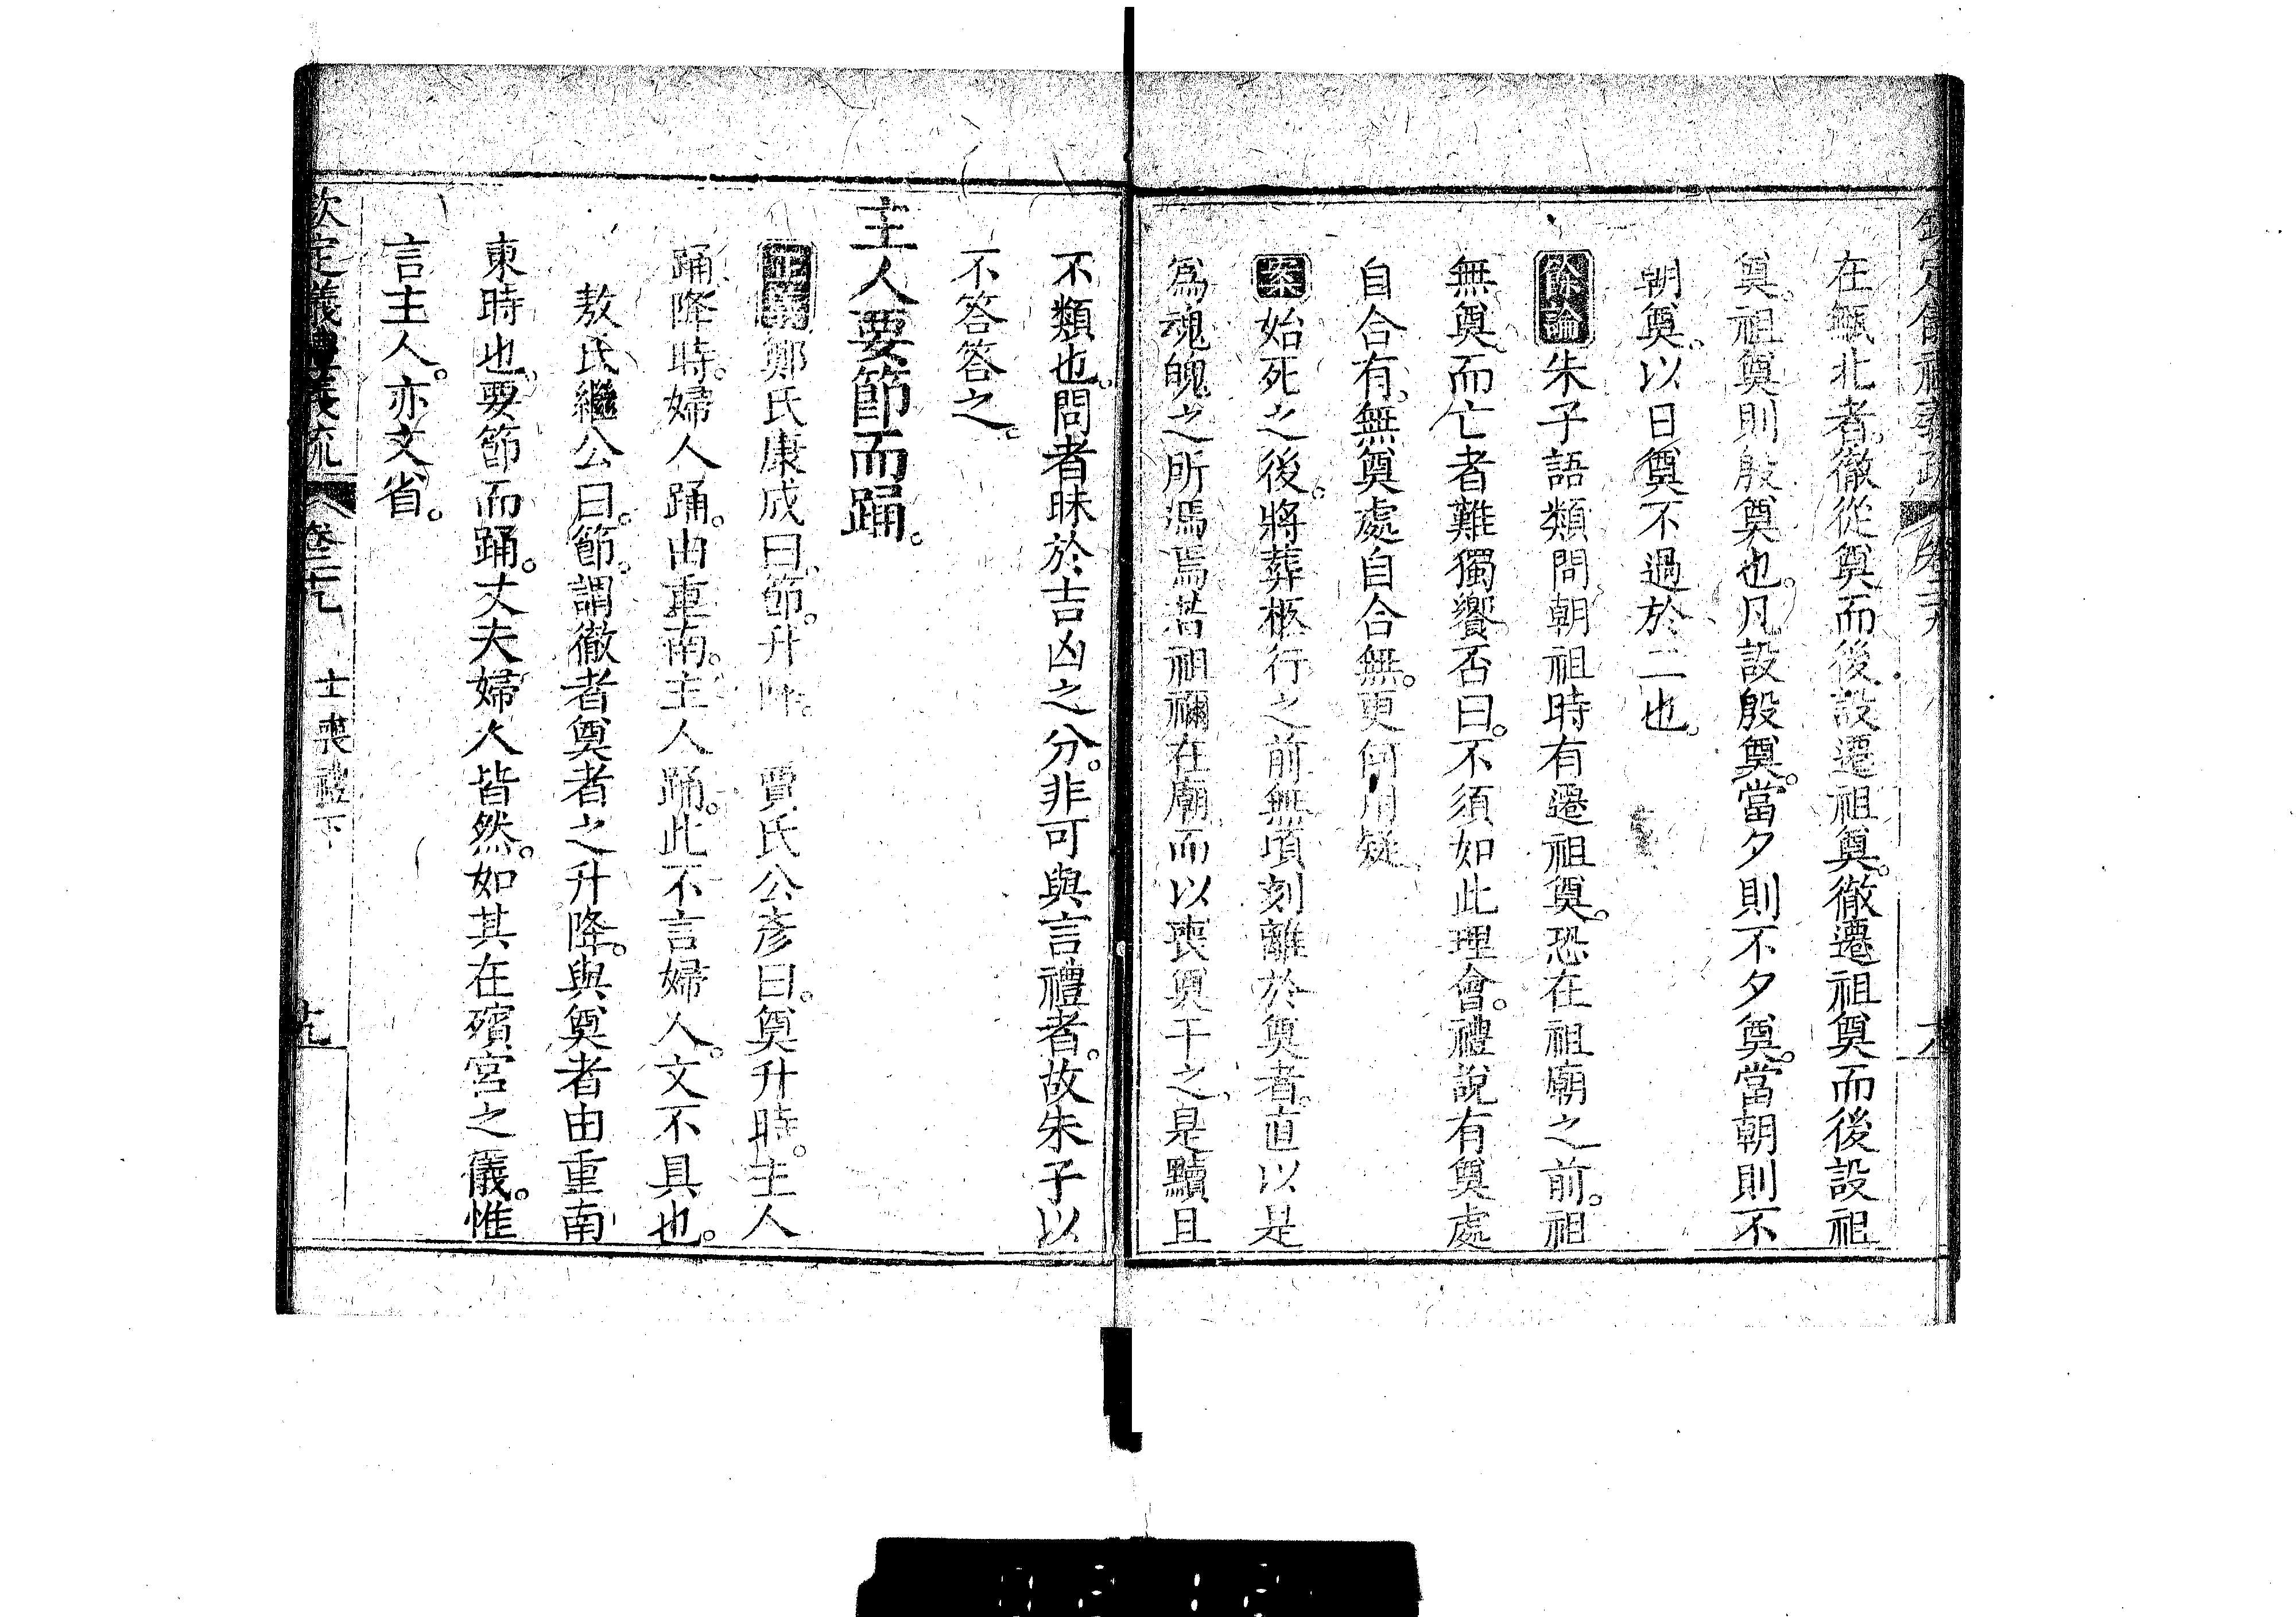 在甒北者徹從奠而後設遷祖奠。徹遷祖奠而後設祖
奠。祖奠則殷奠也。凡設殷奠。當夕則不夕奠。當朝則不
朝奠。以日奠不過於二也。
餘論朱子語類問朝祖時有遷祖奠。恐在祖廟之前。祖
無奠。而亡者難獨饗。否曰。不須如此理會。禮說有奠處
自合有。無奠處自合無。更何用疑
案始死之後。將葬柩行之前。無頃刻離於奠者。直以是
爲魂魄之所馮焉。若祖禰在廟而以喪奠干之。是黷且
不類也。問者昧於吉凶之分。非可與言禮者。故朱子以
不答答之。
主人要節而踊。
正義鄭氏康成曰。節。升降。 賈氏公彥曰。奠升時。主人
踊。降時。婦人踊。由重南。主人踊。此不言婦人。文不具也。
敖氏繼公曰。節。謂徹者奠者之升降。與奠者由重南
東時也。要節而踊。丈夫婦人皆然。如其在殯宮之儀。惟
言主人。亦文省。
欽定義禮義疏 卷二十九 士喪禮下 十九